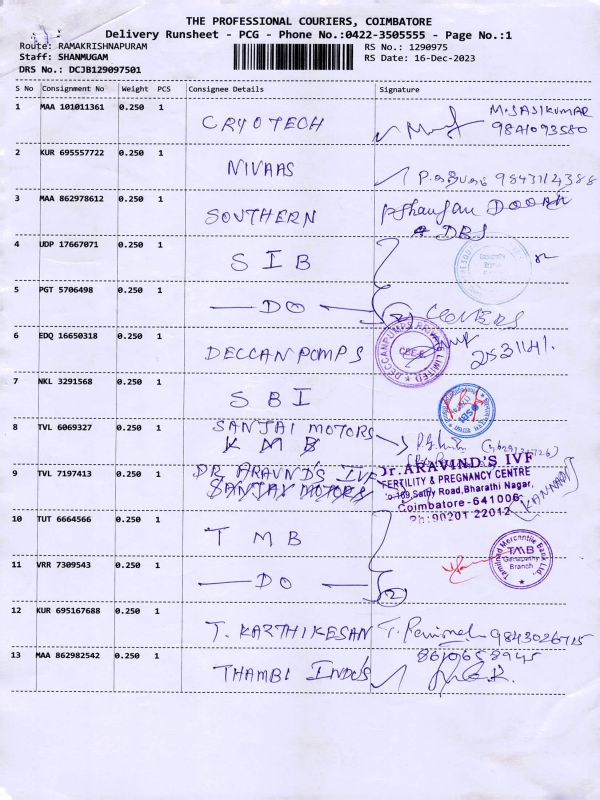 THE PROFESSIONAL COURIERS, COIMBATORE
Delivery Runsheet - PCG - Phone No.:0422-3505555 - Page No.:1
Route: RAMAKRISHNAPURAM RS No.: 1290975
Staff: SHANMUGAM RS Date: 16-Dec-2023
DRS No.: DCJB129097501
S No Consignment No Weight PCS Consignee Details Signature
1 MAA 101011361 0.250 1 CRYOTECH M.SASIKUMAR
9841093580
2 KUR 695557722 0.250 1 NIVAAS 9843114388
3 MAA 862978612 0.250 1 SOUTHERN
4 UDP 17667071 0.250 1 SIB
5 PGT 5706498 0.250 1 DO (2)
6 EDQ 16650318 0.250 1 DECCAN PUMPS DECCANPUMPS PRIVATE LIMITED 2531141.
7 NKL 3291568 0.250 1 SBI
8 TVL 6069327 0.250 1 SANJAI MOTORS
KMB
9 TVL 7197413 0.250 1 DR ARAVND'S IVF
SANJAY MOTORS
Dr. ARAVIND'S IVF
FERTILITY & PREGNANCY CENTRE
Sathy Road, Bharathi Nagar,
Coimbatore - 641006
Ph: 90201 22012
10 TUT 6664566 0.250 1 TMB
Tamilnad Mercantile Bank Ltd.
TMB
Ganapathy
Branch
11 VRR 7309543 0.250 1 DO (2)
12 KUR 695167688 0.250 1 T. KARTHIKESAN 9843026715
13 MAA 862982542 0.250 1 THAMBI INDUS 8610658945